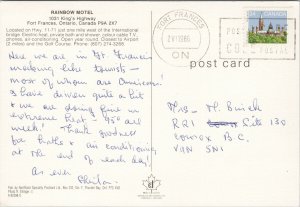 RAINBOW MOTEL
1031 King's Highway
Fort Frances, Ontario, Canada P9A 2X7
Located on Hwy. 11-71 just one mile west of the International
bridge. Electric heat, private bath and shower, cable T.V., phones,
air conditioning. Open year round. Closest to Airport
(2 miles) and the Golf Course. Phone: (807) 274-3268.
Here we are in Ft. Frances
looking like tourists -
most of whom are Americans.
I have driven quite a bit
& we are doing fine in
extreme heat 95° all
week! Thank goodness
for baths & air conditioning
at the end of each day!
As ever
FORT FRANCES
1986
ON
POSTAL CODE
CODE POSTAL
Mrs. M.
RR1 Site 130
Comox B.C.
V0N 5N1